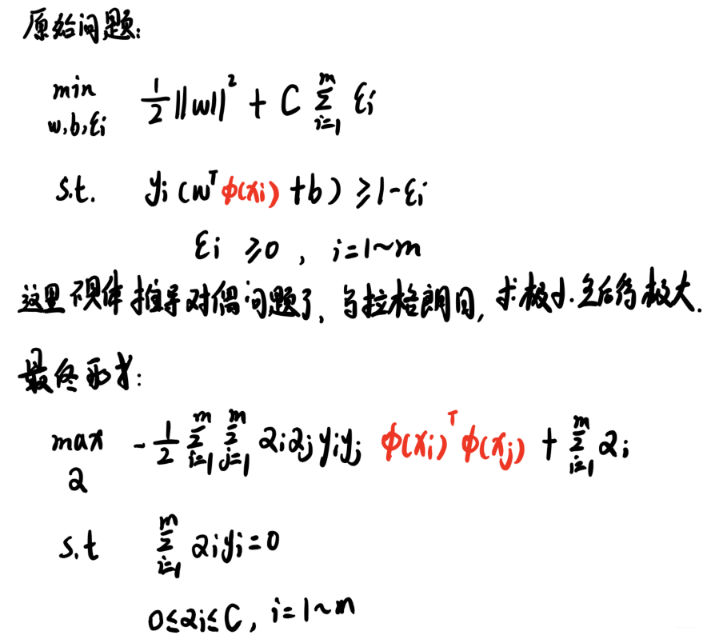 原始问题:
min w,b,εi 1/2 ||w||² + C Σ_{i=1}^{m} εi
s.t. yi (wᵀ φ(xi) + b) ≥ 1-εi
εi ≥ 0 , i=1~m
这里不具体推导对偶问题了、写拉格朗日, 求极小.之后得极大.
最终形式:
max α -1/2 Σ_{i=1}^{m} Σ_{j=1}^{m} αiαj yiyj φ(xi)ᵀφ(xj) + Σ_{i=1}^{m} αi
s.t Σ_{i=1}^{m} αiyi=0
0≤αi≤C, i=1~m